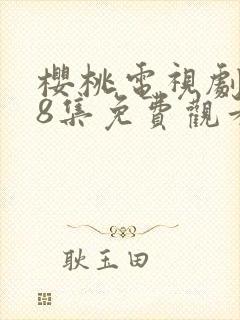 櫻桃電視劇
8集免費觀
耿玉田